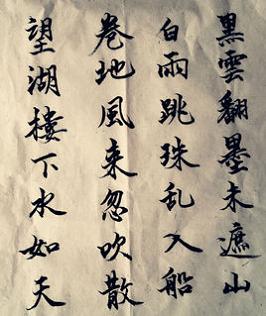 黑雲翻墨未遮山
白雨跳珠乱入船
卷地風来忽吹散
望湖樓下水如天